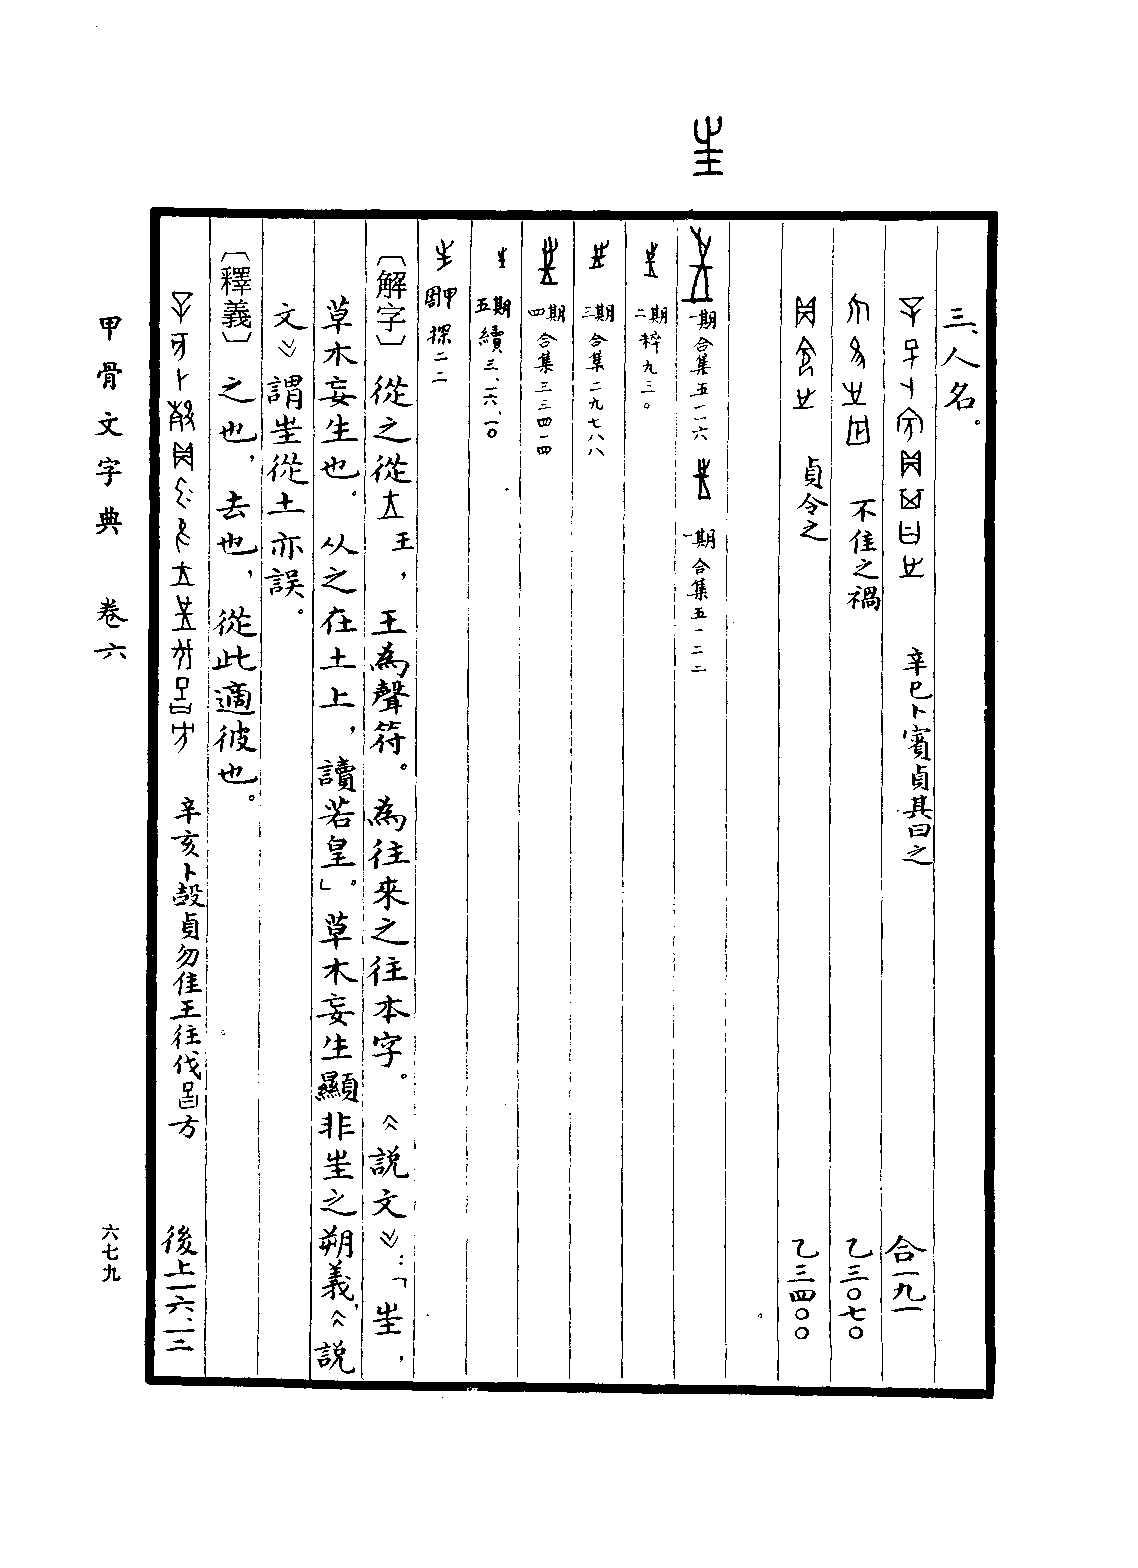 㞷
三、人名。
辛巳卜賓貞其曰之 合一九一
不隹之禍 乙三〇七〇
貞令之 乙三四〇〇
一期 合集五一一六 一期 合集五一二二
二期 粹九三〇
三期 合集二九七八八
四期 合集三三四一四
五期 續三、一六、一〇
周甲 探二二
〔解字〕 從之從王，王為聲符。為往來之往本字。《說文》：「㞷，
草木妄生也。从之在土上，讀若皇」。草木妄生顯非㞷之朔義，《說
文》謂㞷從土亦誤。
〔釋義〕 之也，去也，從此適彼也。
辛亥卜㱿貞勿隹王往伐𠮛方 後上一六、一二
甲骨文字典 卷六
六七九